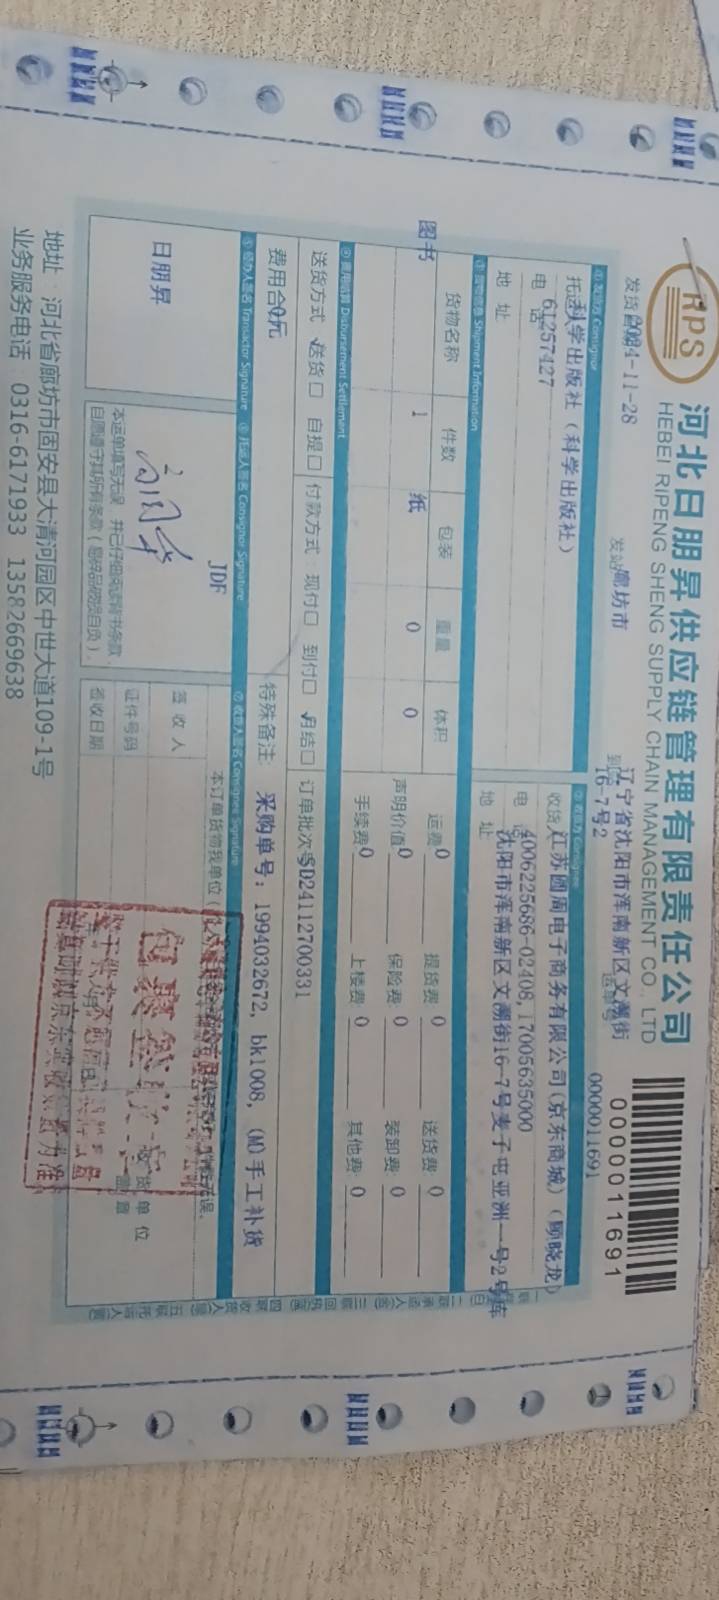 RPS
河北日朋昇供应链管理有限责任公司
HEBEI RIPENG SHENG SUPPLY CHAIN MANAGEMENT CO., LTD
0000011691
发货日期 2024-11-28
发站 廊坊市
到站 辽宁省沈阳市浑南新区文溯街16-7号2
运单号 0000011691
① 发货方 Consignor
托运人 科学出版社（科学出版社）
电话 61257427
地址
② 收货方 Consignee
收货人 江苏圆周电子商务有限公司(京东商城)（顾晓龙）
电话 4006225686-02408,17005635000
地址 沈阳市浑南新区文溯街16-7号麦子屯亚洲一号2号库
③ 货物信息 Shipment Information
货物名称 件数 包装 重量 体积
图书 1 纸 0 0
运费 0 提货费: 0 送货费: 0
声明价值: 0 保险费: 0 装卸费: 0
手续费: 0 上楼费: 0 其他费: 0
④ 费用结算 Disbursement Settlement
送货方式 √送货□ 自提□ 付款方式: 现付□ 到付□ √月结□ 订单批次号 SD24112700331
费用合计 0元
特殊备注: 采购单号：1994032672, bk1008, (M)手工补货
⑤ 经办人签名 Transactor Signature ⑥ 托运人签名 Consignor Signature ⑦ 收货人签名 Consignee Signature
日朋昇
JDF
本订单货物我单位（
无误.
本运单填写无误，并已仔细阅读背书条款，
自愿遵守其所有条款（易碎品破损自负）.
签收人
证件号码
签收日期
收货单位
盖章
地址：河北省廊坊市固安县大清河园区中世大道109-1号
业务服务电话：0316-6171933 13582669638